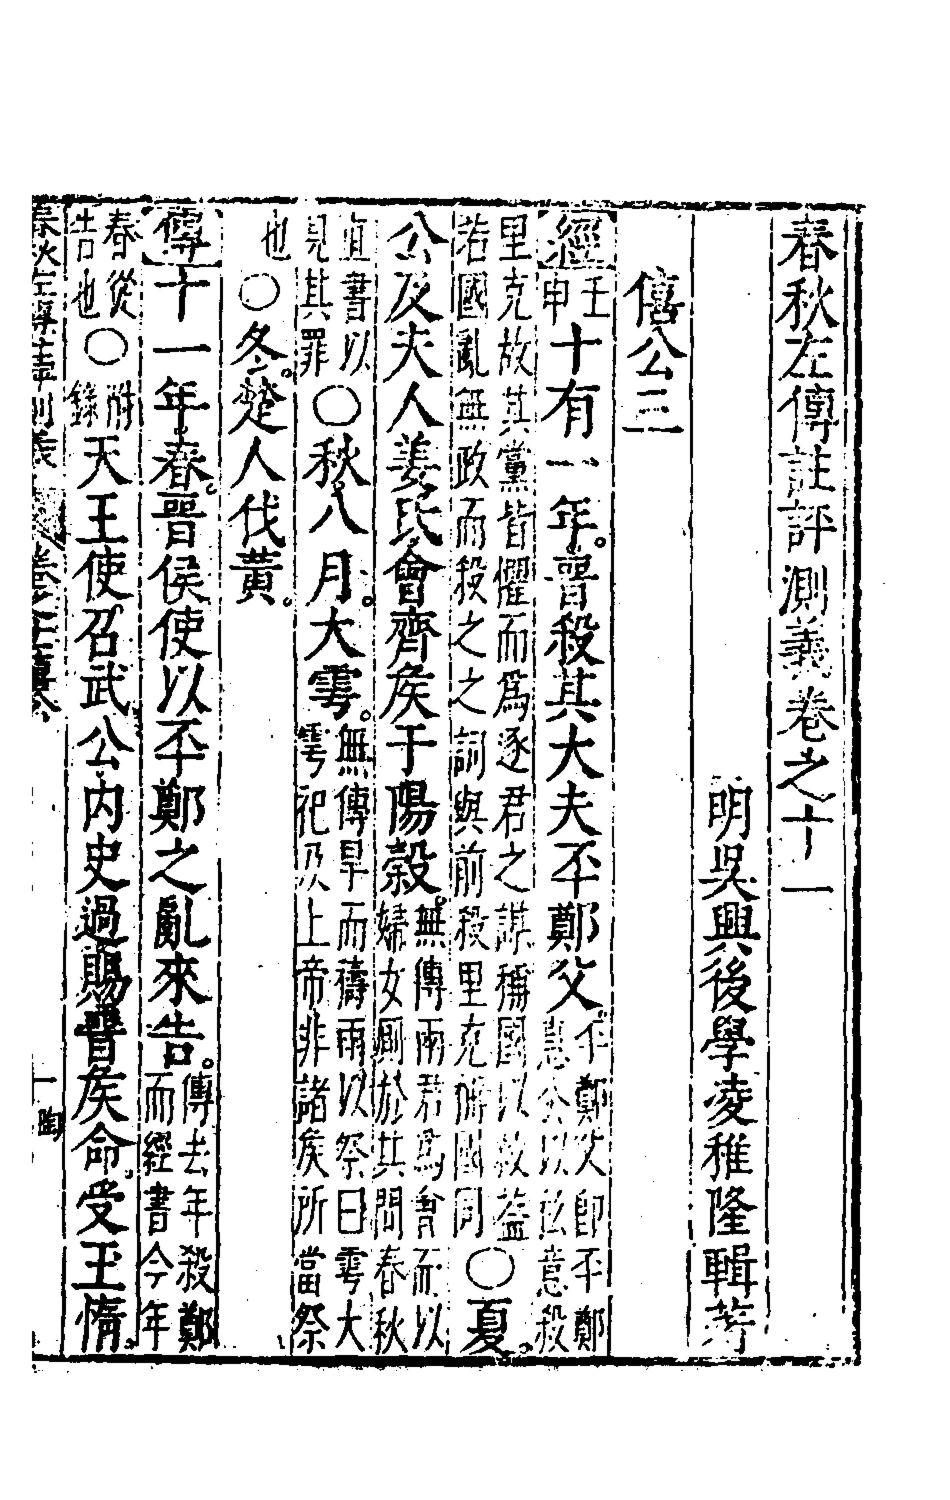 春秋左傳註評測義卷之十一
明吳興後學凌稚隆輯著
僖公三
經壬申十有一年。晉殺其大夫丕鄭父丕鄭父即丕鄭惠公以私意殺
里克故其黨皆懼而爲逐君之謀稱國以殺蓋若國亂無政而殺之之詞與前殺里克稱國同○夏。
公及夫人姜氏會齊矦于陽穀無傳兩君爲會而以婦女厠於其間春秋
直書以見其罪○秋八月。大雩。無傳旱而禱雨以祭曰雩大雩祀及上帝非諸矦所當祭
也○冬。楚人伐黃。
傳十一年。春。晉侯使以丕鄭之亂來告。傳去年殺鄭而經書今年
春從告也○附錄天王使召武公内史過賜晉矦命。受玉惰。
春秋左傳註評測義 卷之十一 僖公 一 陶